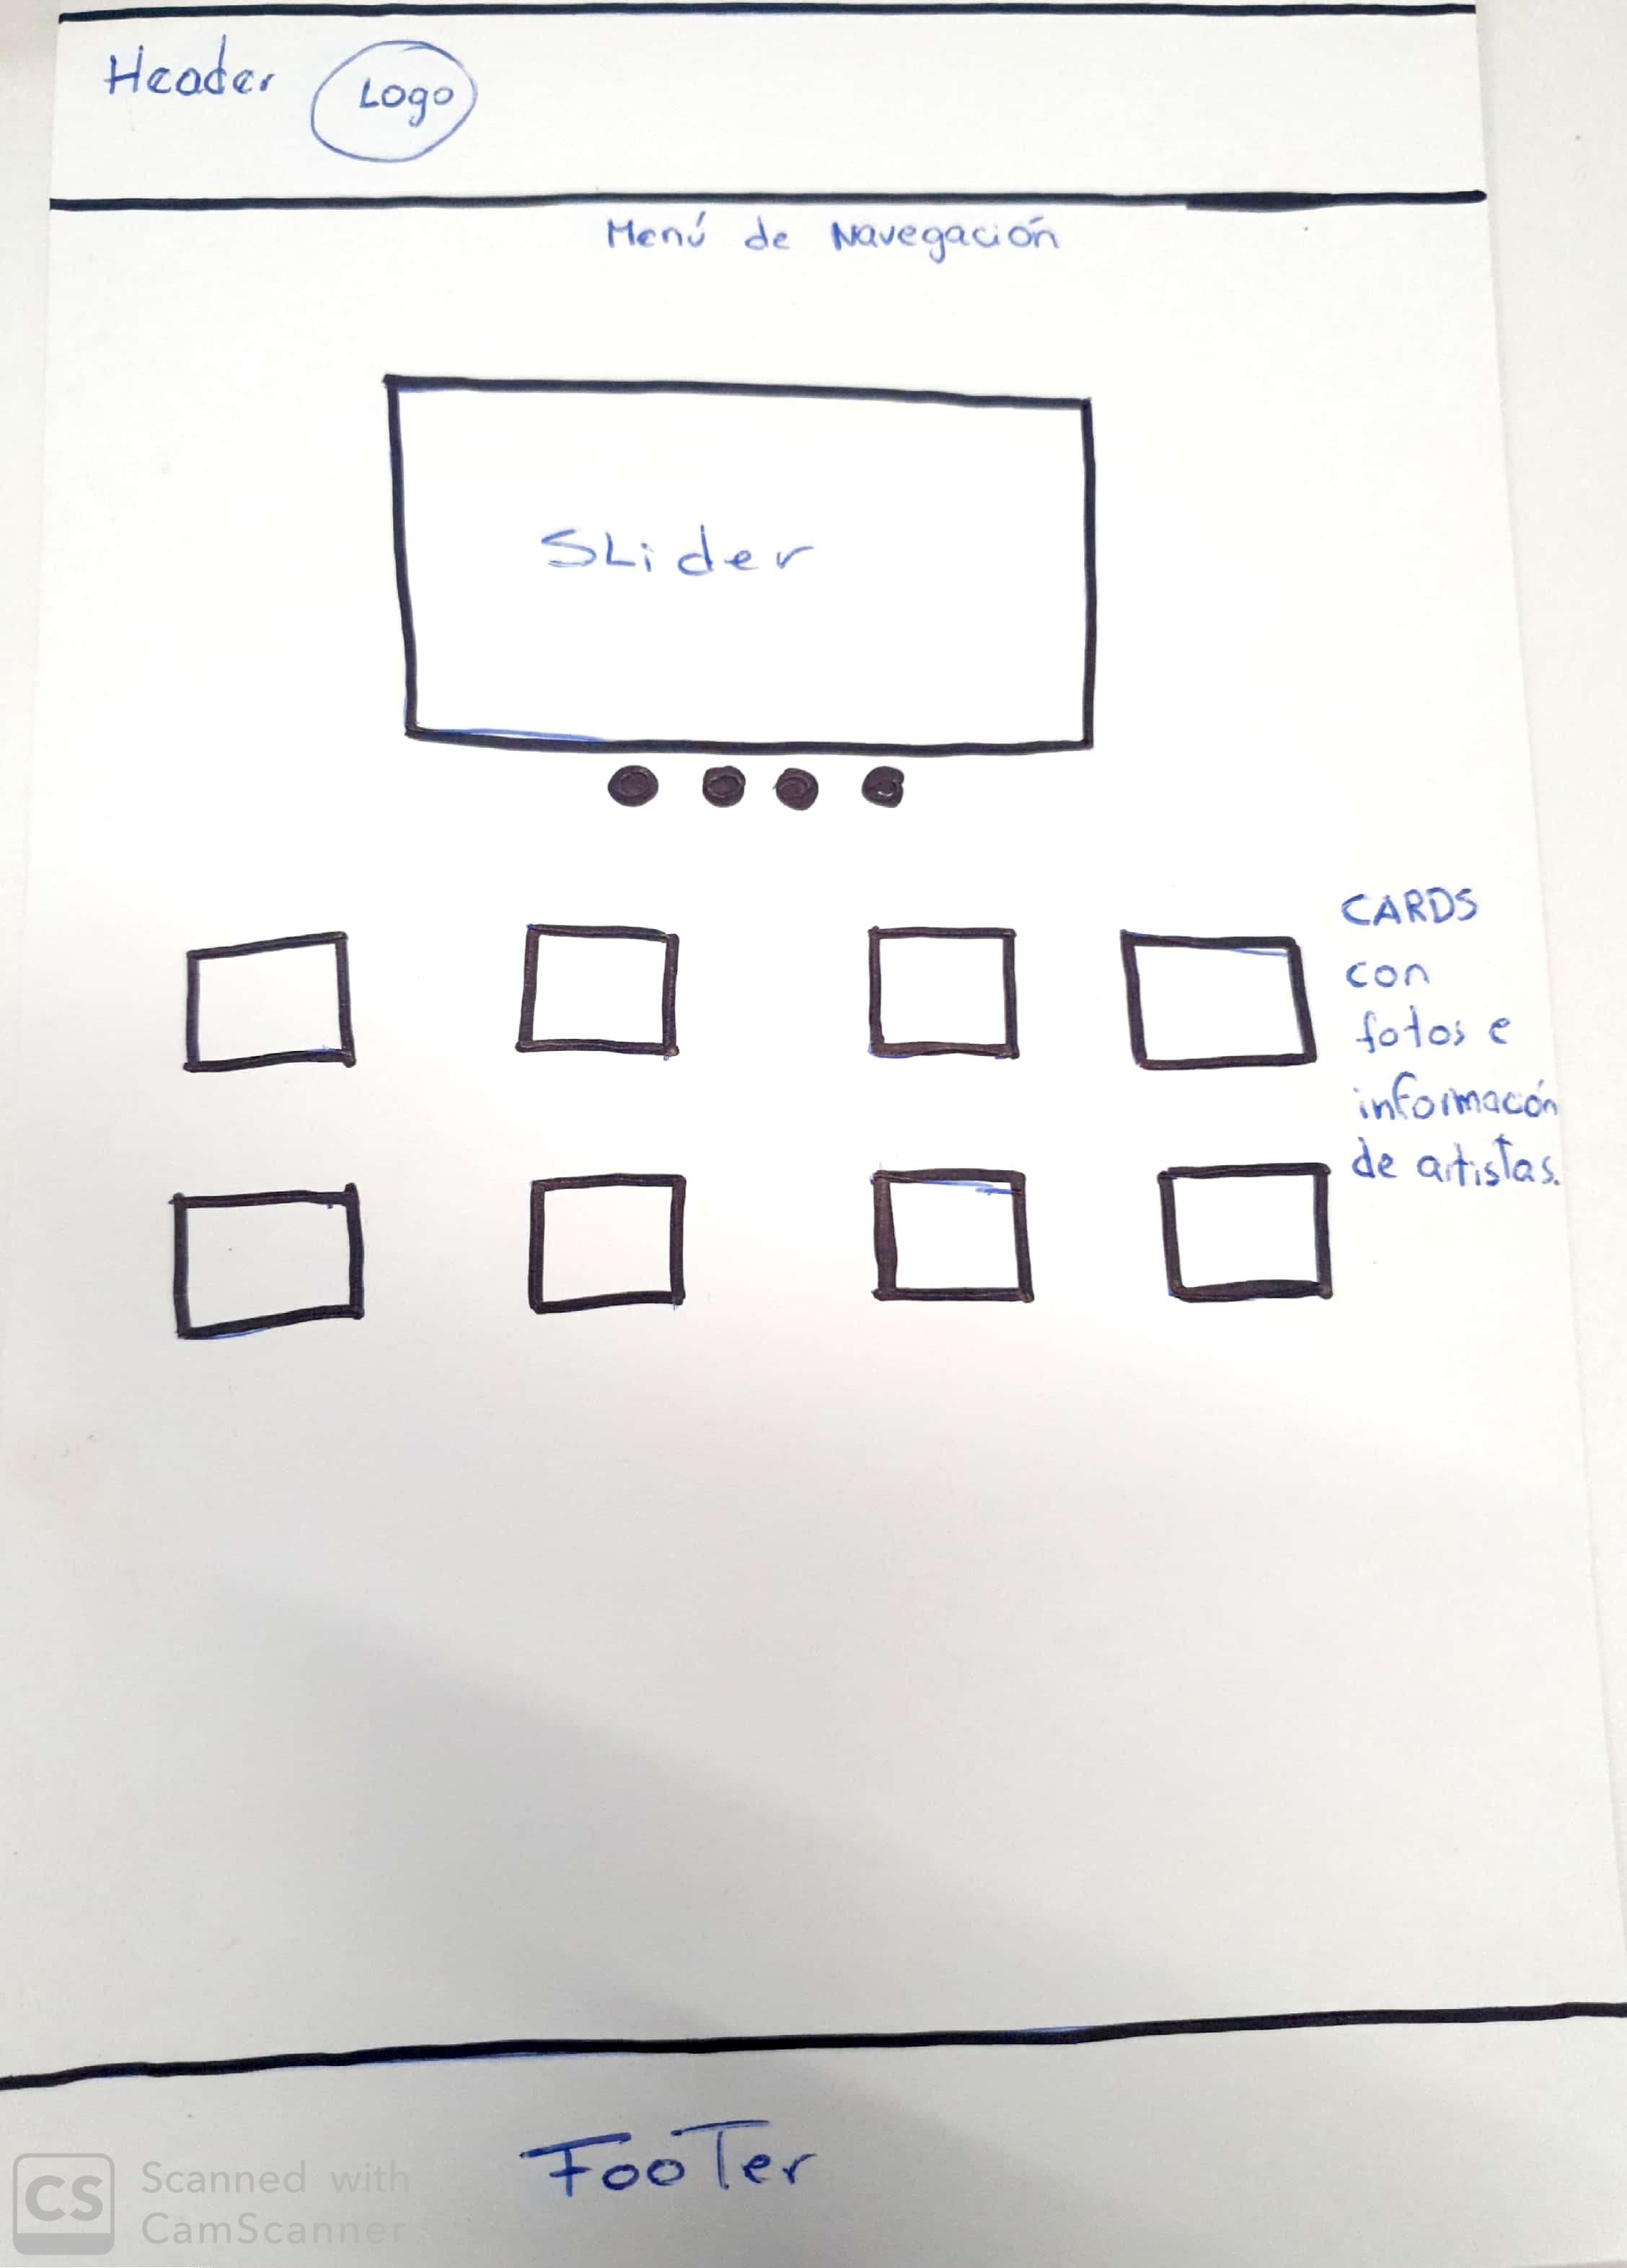 Header
Logo
Menú de Navegación
SLider
CARDS
con
fotos e
información
de artistas.
FooTer
CS
Scanned with
CamScanner